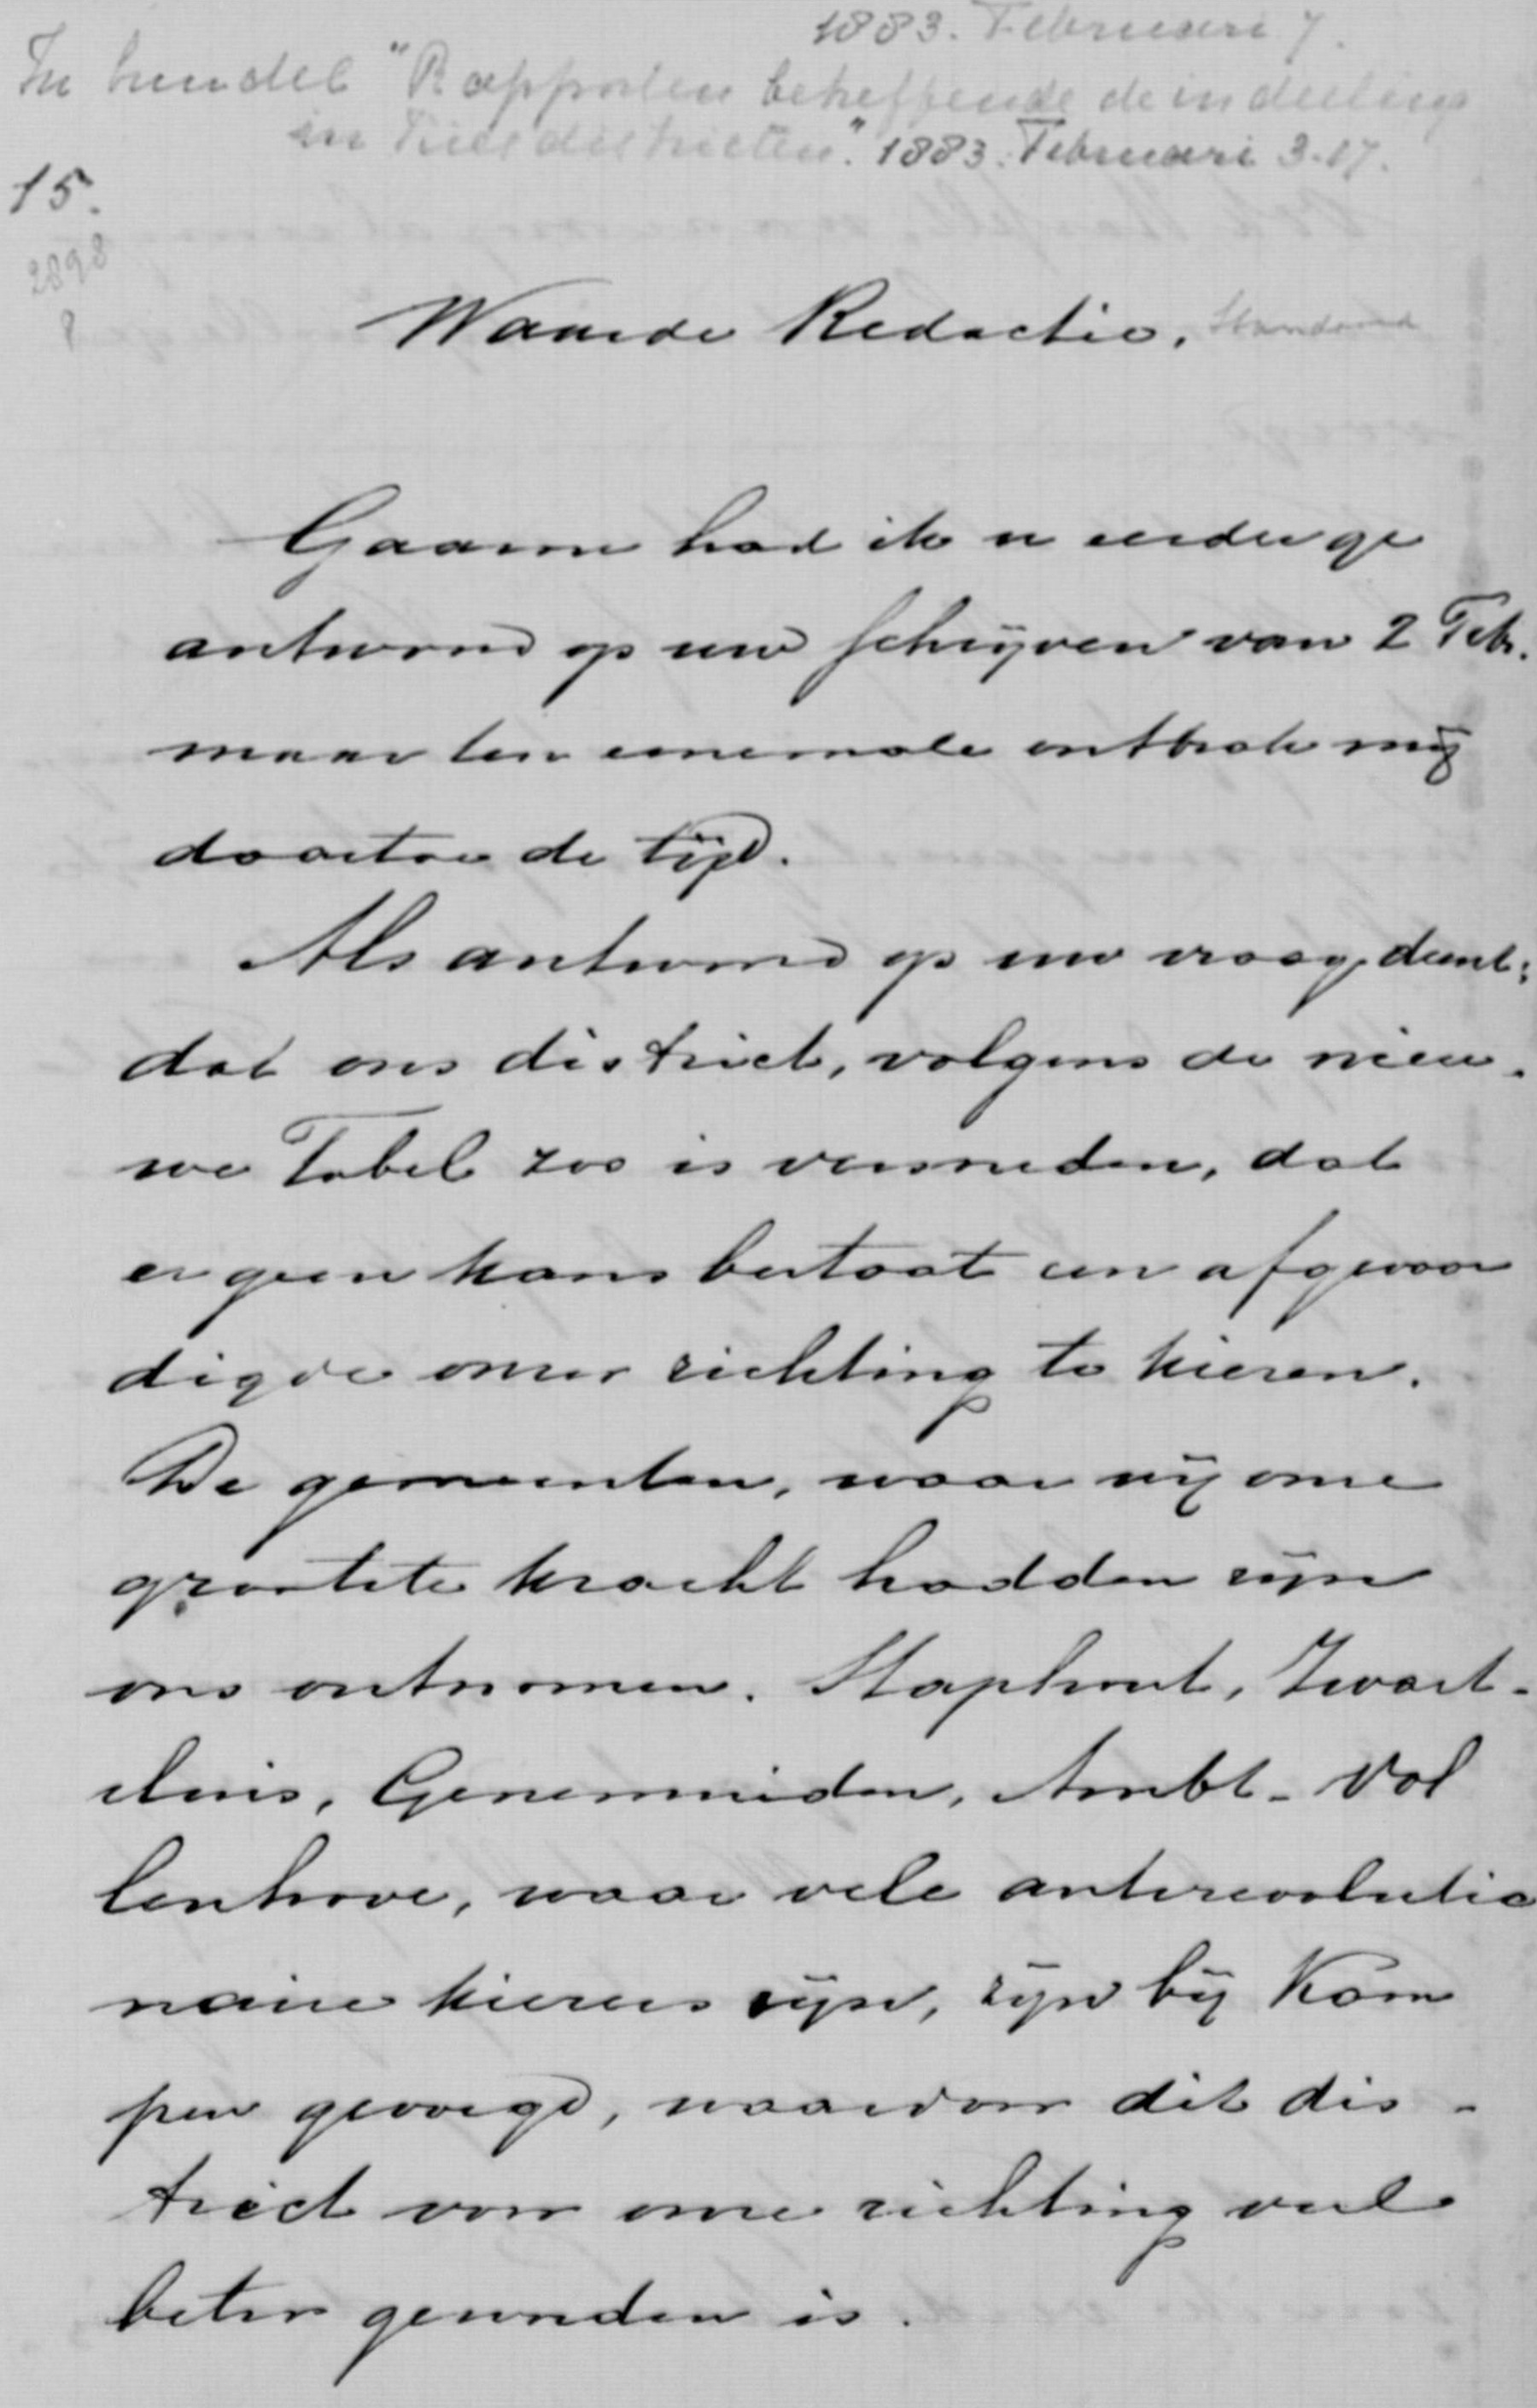 1883. Februari 7.
In bundel "Rapporten betreffende de indeeling
in Kiesdistricten". 1883. Februari 3-17.
15.
2898
8
Waarde Redactie, Standaard
Gaarne had ik u eerder ge
antwoord op uw schrijven van 2 Febr.
maar ten eenemale ontbrak mij
daartoe de tijd.
Als antwoord op uw vraag dient:
dat ons district, volgens de nieu-
we Tabel zoo is versneden, dat
er geen kans bestaat een afgevaar
digde onzer richting te kiezen.
De gemeenten, waar wij onze
grootste kracht hadden zijn
ons ontnomen. Staphorst, Zwart-
sluis, Genemuiden, Ambt-Vol
lenhove, waar vele antirevolutio
naire kiezers zijn, zijn bij Kam
pen gevoegd, waardoor dit dis-
trict voor onze richting veel
beter geworden is.